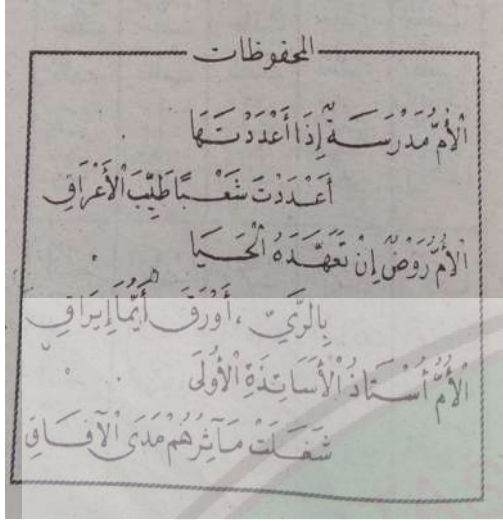 المحفوظات
اَلْأُمُّ مَدْرَسَةٌ إِذَا أَعْدَدْتَهَا
أَعْدَدْتَ شَعْبًا طَيِّبَ الْأَعْرَاقِ
اَلْأُمُّ رَوْضٌ إِنْ تَعَهَّدَهُ الْحَيَا
بِالرَّيِّ ، أَوْرَقَ أَيَّمَا إِيرَاقِ
اَلْأُمُّ أُسْتَاذُ الْأَسَاتِذَةِ الْأُولَى
شَغَلَتْ مَآثِرُهُمْ مَدَى الْآفَاقِ